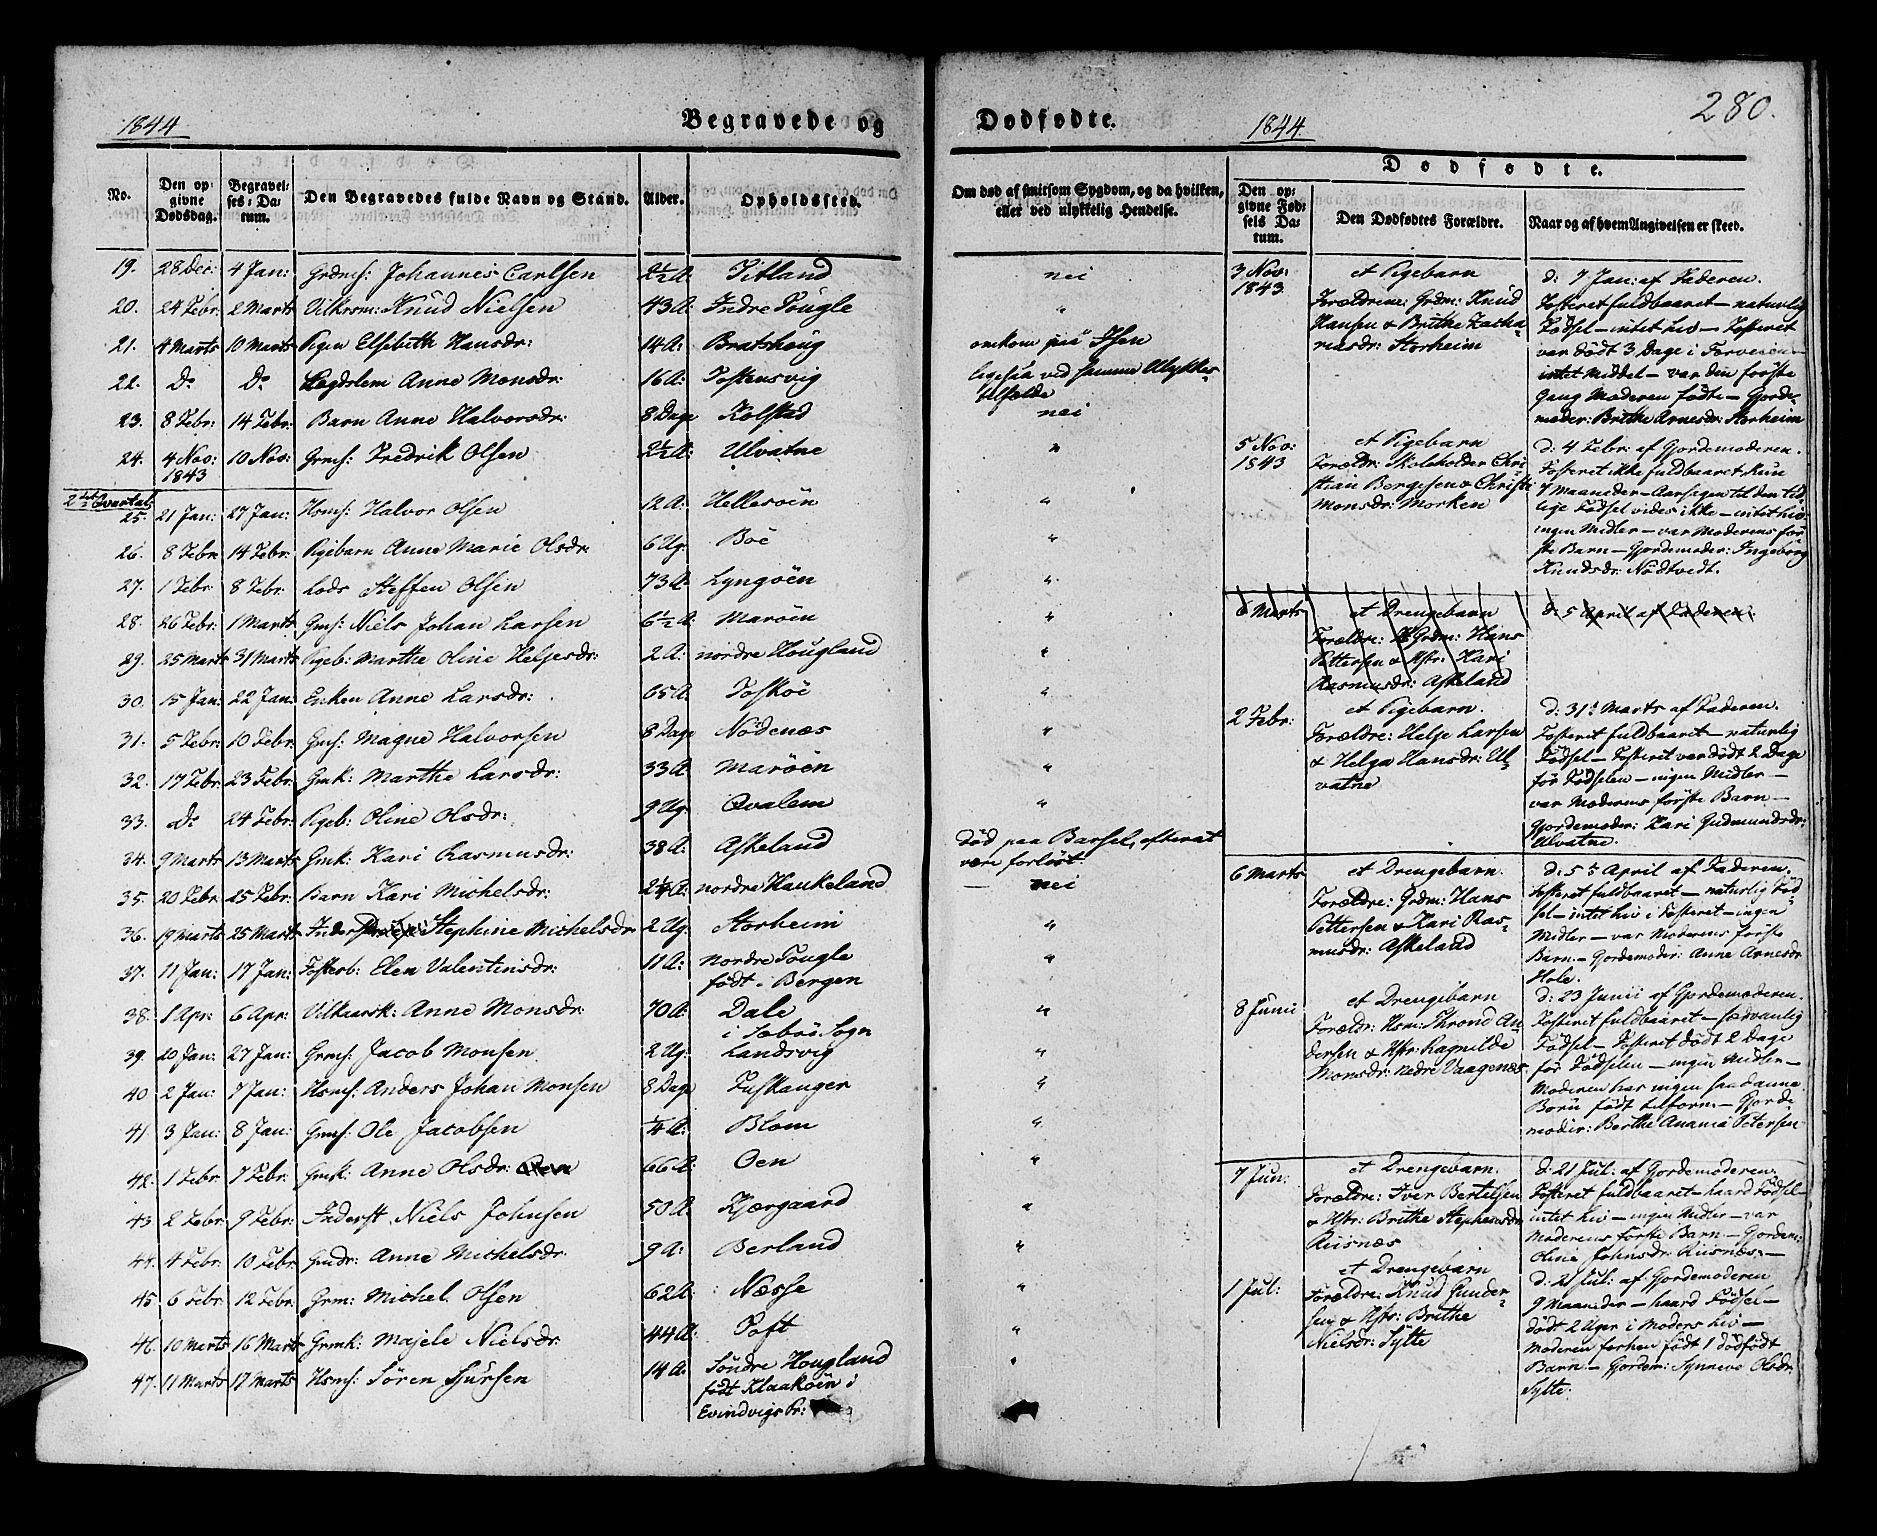 1844
Begravede og
Dødfødte.
1844
280.
No.
Den op=
givne
Dødsdag.
Begravel=
ses=Da=
tum.
Den Begravedes fulde Navn og Stand.
Alder.
Opholdssted.
Om død af smitsom Sygdom, og da hvilken,
eller ved ulykkelig Hendelse.
Dødfødte.
Den op=
givne Fød=
sels Da=
tum.
Den Dødfødtes Forældre.
Naar og af hvem Angivelsen er skeed.
19. 28 Dec: 4 Jan: Grdms: Johannes Carlsen 2½ A: Titland nei
20. 24 Febr: 2 Marts Vilkrsm: Knud Nielsen 43 A: Indre Fougle "
21. 4 Marts 10 Marts Pigen Elsebeth Hansdr: 14 A: Bratshoug omkom paa Isen
22. Do Do Lægdslem Anne Monsdr: 16 A: Tostensvig ligesaa ved samme Ulykkes=
tilfælde
23. 8 Febr: 14 Febr: Barn Anne Halvorsdr: 8 Dage Kolstad nei
24. 4 Nov: 10 Nov: Grms: Fredrik Olsen 2½ A: Ulvatne "
1843
2det Qvartal
25. 21 Jan: 27 Jan: Hsms: Halvor Olsen 12 A: Hellesöen "
26. 8 Febr: 14 Febr: Pigebarn Anne Marie Olsdr: 6 Ug: Böe "
27. 1 Febr: 8 Febr: Lods Steffen Olsen 73 A: Lyngöen "
28. 26 Febr: 1 Marts Gms: Niels Johan Larsen 6½ A: Maröen "
29. 25 Marts 31 Marts Pigeb: Marthe Oline Helgesdr: 2 A: nordre Hougland "
30. 15 Jan: 22 Jan: Enken Anne Larsdr: 65 A: Tosköe "
31. 5 Febr: 10 Febr: Gms: Magne Halvorsen 8 Dage Nödenæs "
32. 17 Febr: 23 Febr: Gmk: Marthe Larsdr: 33 A: Maröen "
33. Do 24 Febr: Pigeb: Oline Olsdr: 9 Ug: Qvalem "
34. 9 Marts 13 Marts Gmk: Kari Rasmusdr: 38 A: Askeland död paa Barsel, efterat
være forlöst.
35. 20 Febr: 25 Febr: Barn Kari Michelsdr: nordre Haukeland — nei
36. 19 Marts 25 Marts Stephine Michelsdr: 2 Ug: Storheim "
37. 11 Jan: 17 Jan: Fosterb: Elen Valentinsdr: 11 A: nordre Fougle "
födt i Bergen
38. 1 Apr: 6 Apr: Vilkaarsk: Anne Monsdr: 70 A: Dale "
i Soböe Sogn
39. 20 Jan: 27 Jan: Grms: Jacob Monsen 2 Ug: Landsvig "
40 2 Jan: 7 Jan: Hsms: Anders Johan Monsen 8 Dage Fuskanger "
41. 3 Jan: 8 Jan: Gms: Ole Jacobsen ¼ A: Blom "
42. 1 Febr 7 Febr: Gmk: Anne Olsdr: 66 A: Oen "
43 2 Febr: 9 Febr: Inderst Niels Johnsen 50 A: Kjærgaard "
44. 4 Febr: 10 Febr: Gmdr: Anne Michelsdr: 9 A: Berland "
45 6 Febr: 12 Febr: Grm: Michel Olsen 62 A: Næsse "
46. 10 Marts 16 Marts Grmk: Majele Nielsdr: 44 A: Toft "
47. 11 Marts 17 Marts Hsms: Sören Sjursen 14 A: Söndre Hougland "
født Klaaköen i
Evindvigs Pr:
3 Nov:
1843
et Pigebarn
Forældrene: Grdm: Knud
Hansen & Brithe Zacha=
riasdr: Storheim
d: 7 Jan: af Faderen.
Fosteret fuldbaaret — naturlig
Födsel — intet Liv — Fosteret
var dödt 3 Dage i Forveien —
intet Middel — var den förste
Gang Moderen födte — Gjorde=
moder: Brithe Arnesdr: Storheim
5 Nov:
1843
et Pigebarn
Forældr: Skoleholder Chri=
stian Bergesen & Christi
Monsdr: Morken
d: 4 Febr: af Gjordemoderen.
Fosteret ikke fuldbaaret kun
7 Maaneder — Aarsagen til den tid=
lige Födsel vides ikke — intet Liv
ingen Midler — var Moderens för=
ste Barn — Gjordemoder: Ingeborg
Knudsdr: Nödtvedt.
6 Marts
et Drengebarn
Forældre: Grdm: Hans
Pettersen & Hstr: Kari
Rasmusdr: Askeland
d: 5 April af Faderen:
2 Febr:
et Pigebarn.
Forældre: Helje Larsen
& Helga Hansdr: Ul=
vatne
d: 31te Marts af Faderen.
Fosteret fuldbaaret — naturlig
Födsel — Fosteret var dödt 2 Dage
för Födselen — ingen Midler —
var Moderens förste Barn —
Gjordemoder: Kari Gudmundsdr:
Ulvatne.
6 Marts
et Drengebarn.
Forældre: Grdm: Hans
Pettersen & Kari Ras=
musdr: Askeland
d: 5te April af Faderen.
Fosteret fuldbaaret — naturlig Föd=
sel — intet Liv i Fosteret — ingen
Midler — var Moderens förste
Barn — Gjordemoder: Anne Arnesdr:
Hole.
8 Junii
et Drengebarn
Forældr: Hsm: Thrond An=
dersen & Hstr: Ragnilde
Monsdr: nedre Vaagenæs
d: 23 Junii af Gjordemoderen.
Fosteret fuldbaaret — sædvanlig
Födsel — Fosteret dödt 2 Dage
för Födselen — ingen Midler —
Moderen har ingen saadanne
Börn födt tilforn — Gjorde
moder: Berthe Anania Petersen
7 Jun:
et Drengebarn.
Forældre: Iver Bertelsen
& Hstr: Brithe Stephensdr
Riisnæs
d: 21 Jul: af Gjordemoderen.
Fosteret fuldbaaret — haard Födsel —
intet Liv — ingen Midler — var
Moderens förste Barn — Gjordem:
Oline Johnsdr: Riisnæs. —
1 Jul:
et Drengebarn
Forældre: Knud Gunder=
sen & Hstr: Brithe
Nielsdr: Sylte
d: 21 Jul: af Gjordemoderen
9 Maaneder — haard Födsel —
dödt 2 Uger i Moders Liv —
Moderen forhen födt 1 dödfödt
Barn — Gjordem: Synneve Olsdr:
Sylte.